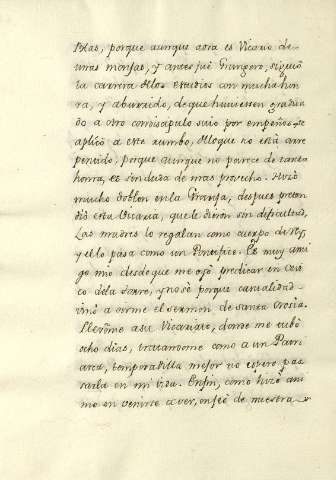 Blas, porque aunque aora es Vicario de
unas monjas, y antes fuè Grangero, siguiò
la carrera de los estudios con mucha hon
ra, y aburrido, de que huviessen gradua
do a otro condiscipulo suio por empeños, se
aplicò a este rumbo, de lo que no està arre
pentido, porque aunque no parece de tanta
honra, es sin duda de mas provecho. Hizo
mucho doblon en la Granja, despues preten
diò esta Vicaria, que le dieron sin dificultad,
Las madres lo regalan como cuerpo de Rey,
y el lo pasa como un Pontifice. Es muy ami
go mio desde que me oyò predicar en
de la Torre, y no sè porque casualidad
vino a oirme el sermon de santa Orosia.
Llevòme a su Vicariato, donde me tubo
ocho dias, tratandome como a un Patri
arca, temporadilla mejor no espero pas
sarla en mi vida. Enfin, como hizo ani
mo en venirse a ver, en feè de nuestra